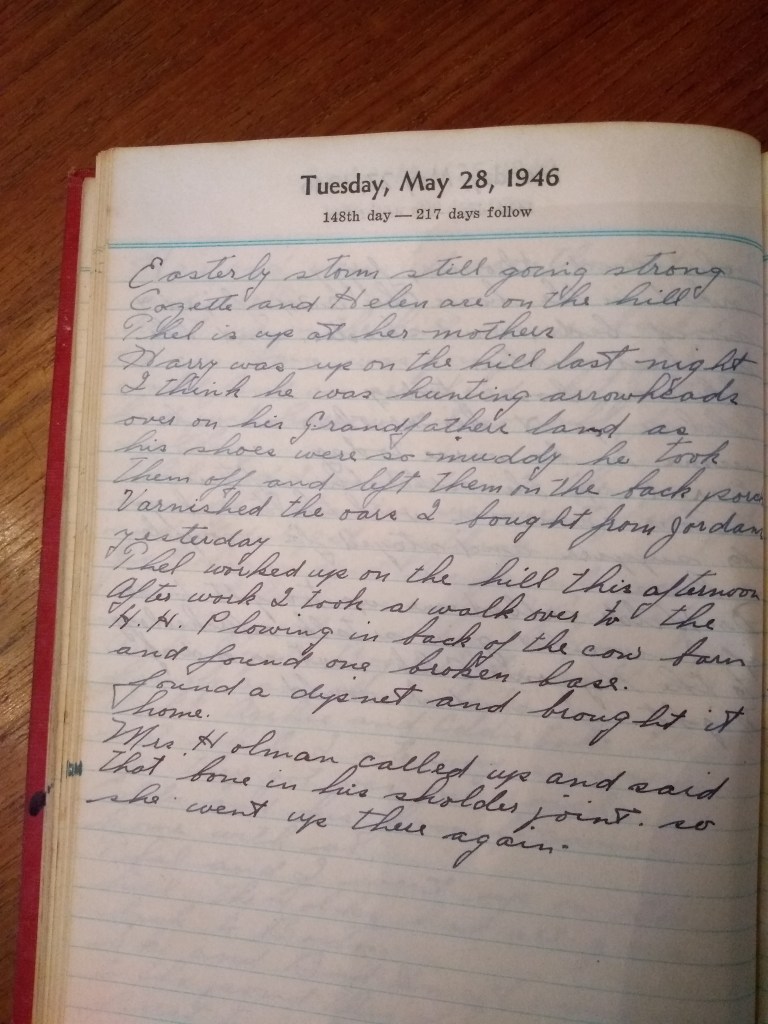 Tuesday, May 28, 1946
148th day — 217 days follow
Easterly storm still going strong
Cozette and Helen are on the hill
Phel is up at her mothers
Harry was up on the hill last night
I think he was hunting arrowheads
over on his Grandfathers land as
his shoes were so muddy he took
them off and left them on the back porch
Varnished the oars I bought from Jordans
yesterday
Phel worked up on the hill this afternoon
After work I took a walk over to the
H. H. Plowing in back of the cow barn
and found one broken base.
found a dipnet and brought it
home.
Mrs. Holman called up and said
that bone in his sholder joint. so
she went up there again.